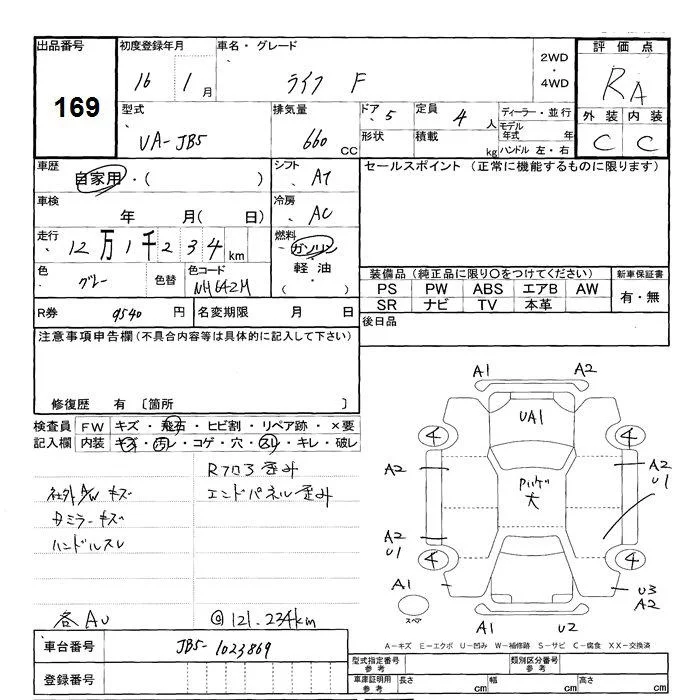 出品番号 初度登録年月 車名・グレード 2WD・4WD 評価点
169 16 1月 ライフ F RA
型式 排気量 ドア 5 定員 4人 ディーラー・並行 外装 内装
UA-JB5 660CC 形状 積載 kg モデル年式 年 C C
ハンドル 左・右
車歴 自家用・( ) シフト AT セールスポイント(正常に機能するものに限ります)
車検 年 月( 日) 冷房 AC
走行 12万1千234km 燃料 ガソリン・軽油・( )
色 グレー 色替 色コード NH642M 装備品(純正品に限り〇をつけてください) 新車保証書
PS PW ABS エアB AW 有・無
SR ナビ TV 本革
R券 9540円 名変期限 月 日 後日品
注意事項申告欄(不具合内容等は具体的に記入して下さい)
修復歴 有〔箇所 〕
検査員 FW キズ・飛石・ヒビ割・リペア跡・×要
記入欄 内装 キズ・汚レ・コゲ・穴・スレ・キレ・破レ
Rフロア歪み
社外A/Wキズ エンドパネル歪み
Bミラーキズ
ハンドルスレ
各AU @121.234km
A1 A2
UA1
4 4
A2 A2 U1
ハ゜ハケ゛大
A2 U1
4 4
A1 U3 A2
スペア
A1 U2
A-キズ E-エクボ U-凹み W-補修跡 S-サビ C-腐食 XX-交換済
車台番号 JB5-1023869
登録番号
型式指定番号 参考 類別区分番号 参考
車庫証明用 参考 長さ cm 幅 cm 高さ cm